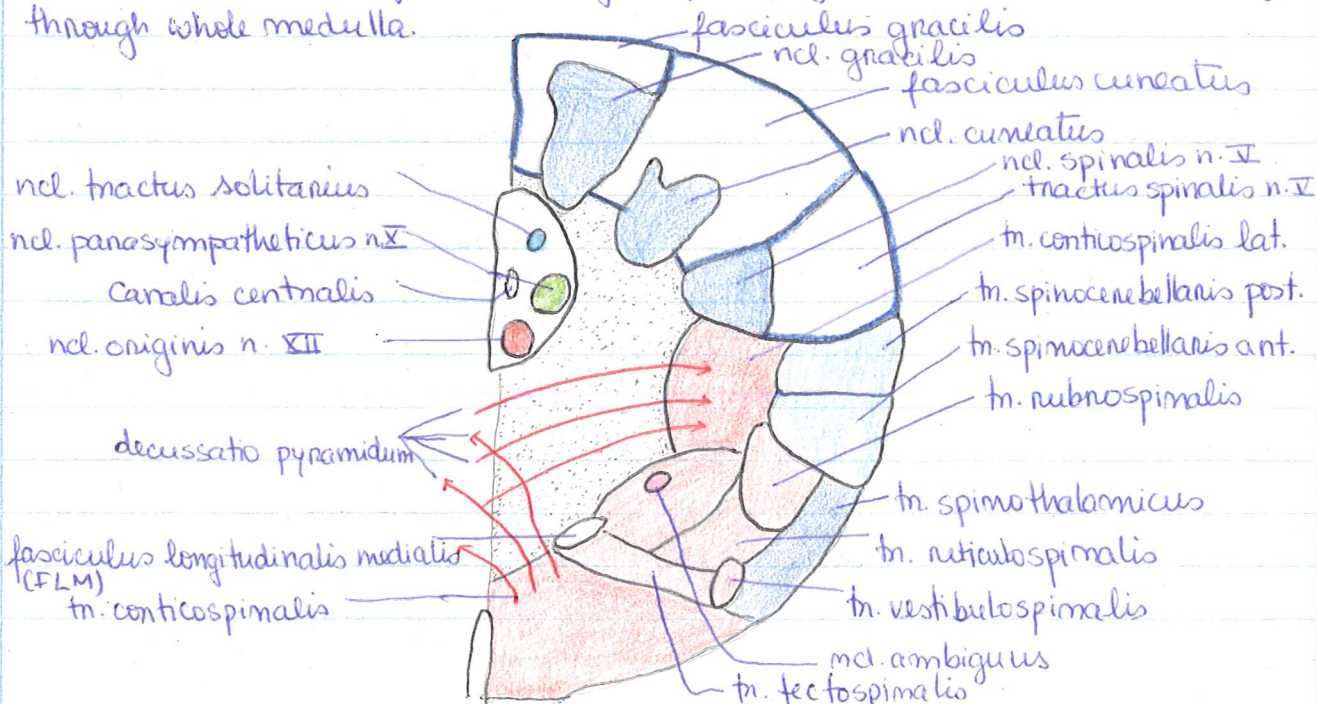 through whole medulla.
fasciculus gracilis
ncl. gracilis
fasciculus cuneatus
ncl. cuneatus
ncl. spinalis n. V
tractus spinalis n. V
tr. corticospinalis lat.
tr. spinocerebellaris post.
tr. spinocerebellaris ant.
tr. rubrospinalis
tr. spinothalamicus
tr. reticulospinalis
tr. vestibulospinalis
ncl. ambiguus
tr. tectospinalis
ncl. tractus solitarius
ncl. parasympatheticus n. X
canalis centralis
ncl. originis n. XII
decussatio pyramidum
fasciculus longitudinalis medialis
(FLM)
tr. corticospinalis